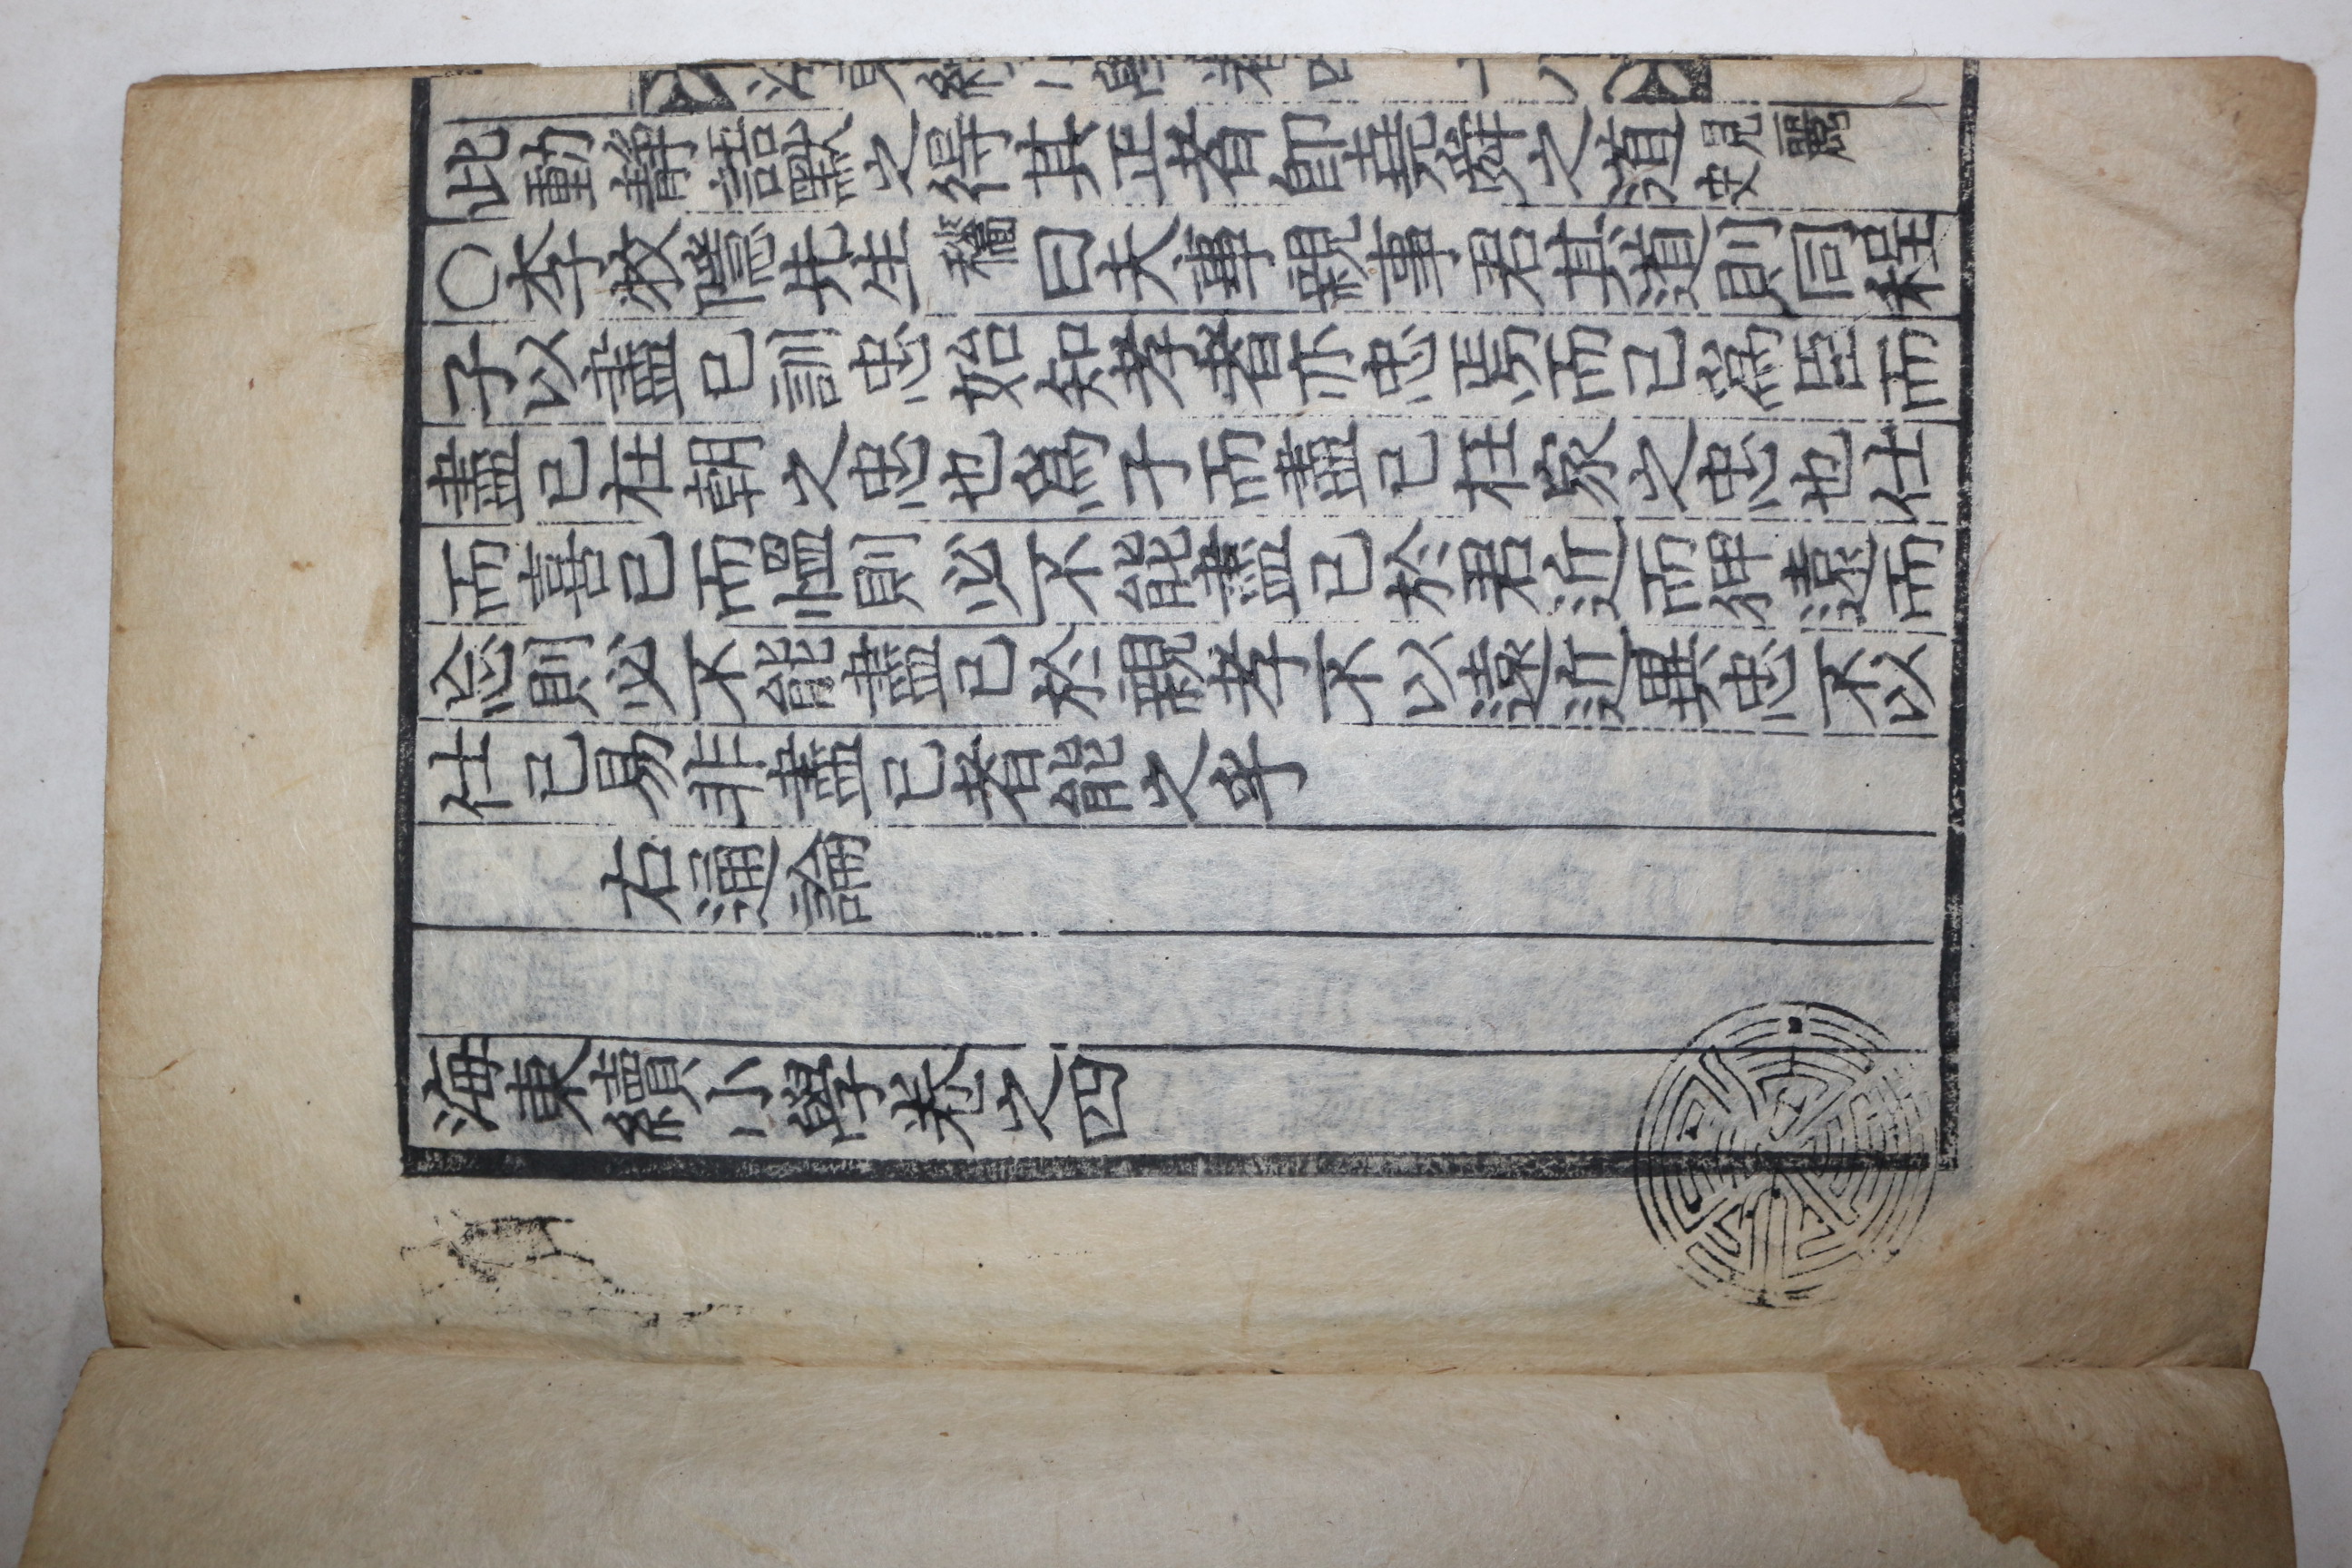 海東續小學卷四 十八
此動静語默之得其正者卽堯舜之道麗史
○李牧隱先生穡曰夫事親事君其道則同程
子以盡已訓忠始知孝者亦忠焉而已爲臣而
盡已在朝之忠也爲子而盡已在家之忠也仕
而喜已而愠則必不能盡已於君近而狎遠而
忩則必不能盡已於親孝不以遠近異忠不以
仕已易非盡已者能之乎
右通論
海東續小學卷之四